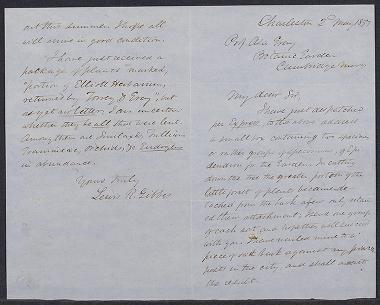 Charleston 2d May 1857
Prof Asa Gray,
Botanic Garden
Cambridge Mass
My dear Sir,
I have just despatched
per Express, to the above address
a small box containing two species
or rather groups of specimens, of Epi-
dendron for the Garden. In cutting
down the tree the greater portion of the
little forest of plants became de-
tached from the bark after only
ed them attachment. I send one group
of each sort and hope they will succeed
with you. I have nailed mine to a
piece of oak bark against my
posts in the city, and shall await
the result.
out this summer. I hope all
will arrive in good condition.
I have just received a
package of plants marked,
"portion of Elliott Herbarium,
returned by Torrey & Gray", but
as yet no letter. I am uncertain
whether they be all that were lent.
Among them are
Gramineae, Orchids, &
in abundance.
Yours truly,
Lewis R. Gibbes